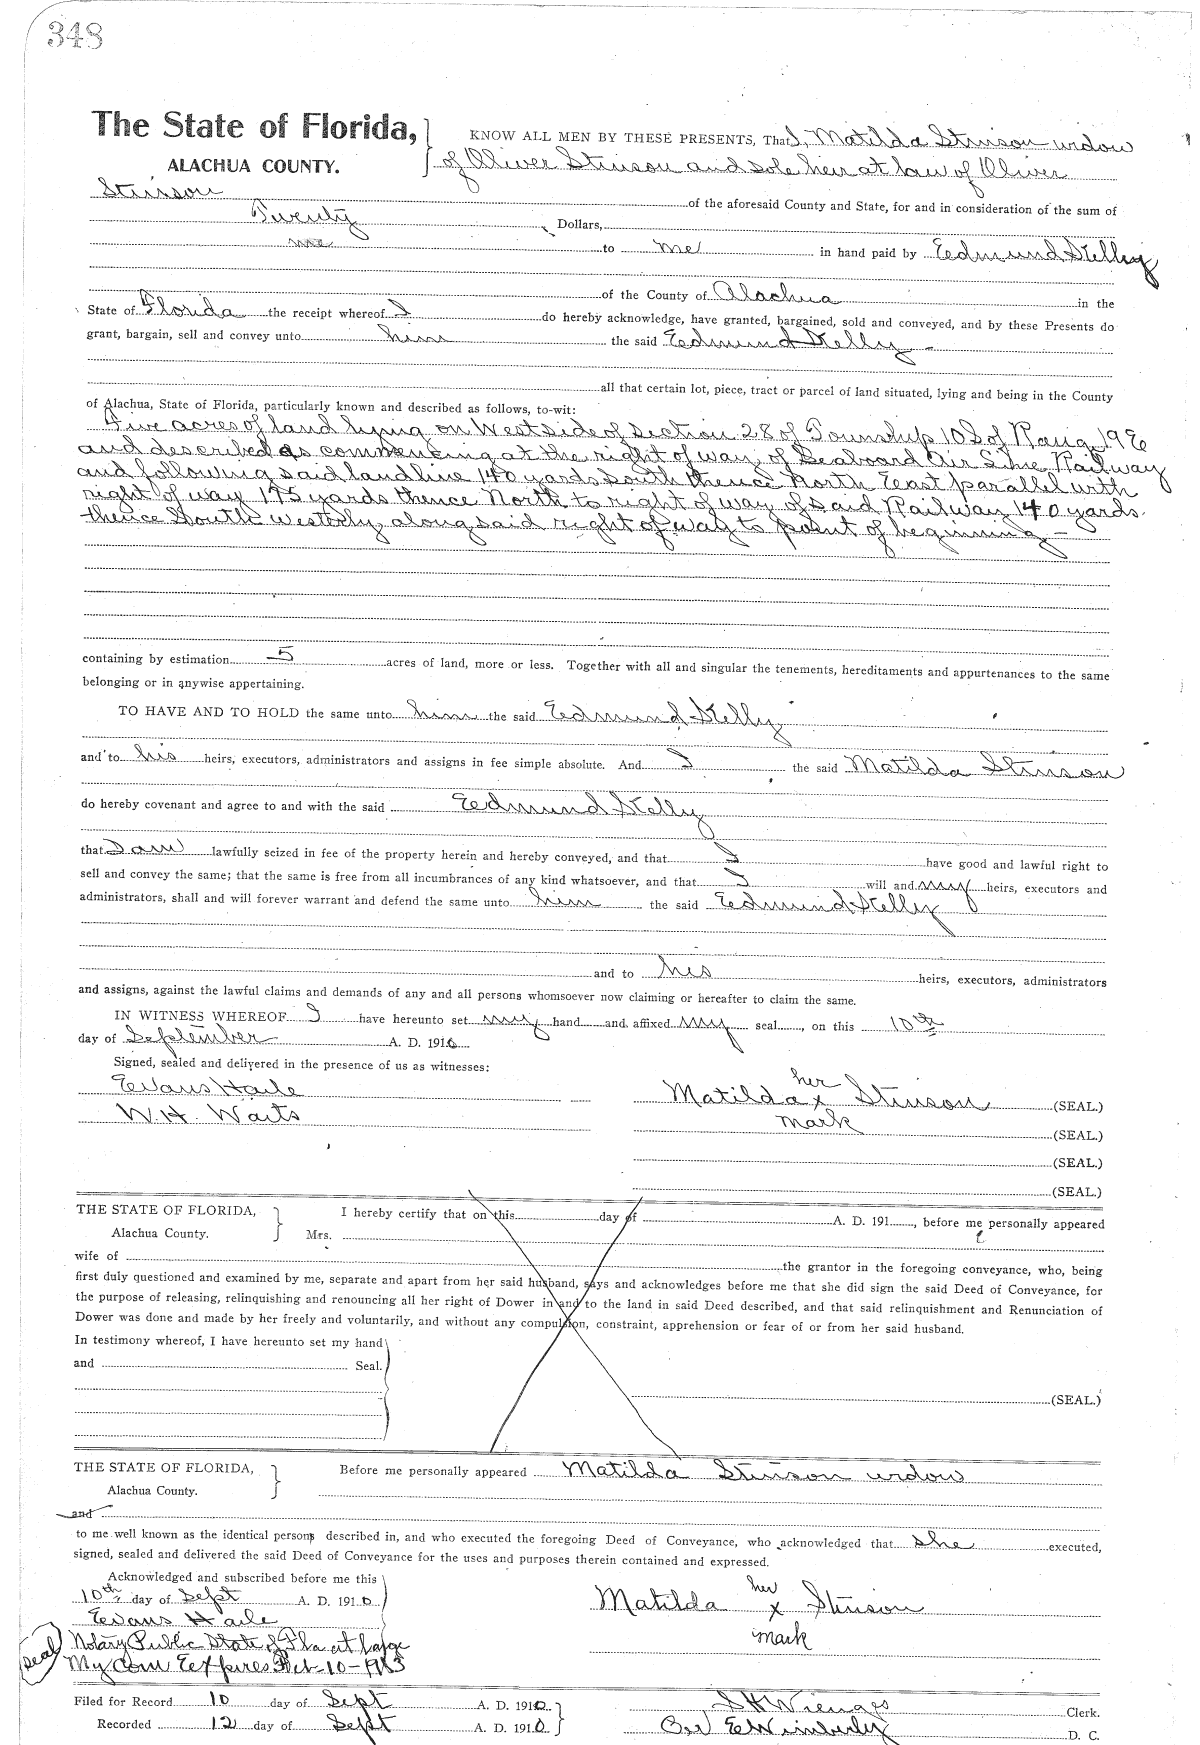 348
The State of Florida, KNOW ALL MEN BY THESE PRESENTS, That I, Matilda Stinson widow
ALACHUA COUNTY. of Oliver Stinson and sole heir at law of Oliver
Stinson of the aforesaid County and State, for and in consideration of the sum of
Twenty Dollars,
me to me in hand paid by Edmund Kelley
of the County of Alachua in the
State of Florida the receipt whereof I do hereby acknowledge, have granted, bargained, sold and conveyed, and by these Presents do
grant, bargain, sell and convey unto him the said Edmund Kelly
all that certain lot, piece, tract or parcel of land situated, lying and being in the County
of Alachua, State of Florida, particularly known and described as follows, to-wit:
Five acres of land lying on West side of Section 28 of Township 10 S of Rang 19 E
and described as commencing at the right of way of Seaboard Air Line Railway
and following said land line 140 yards South thence North East parallel with
right of way 175 yards thence North to right of way of said Railway 140 yards.
thence South Westerly along said right of way to point of beginning –
containing by estimation 5 acres of land, more or less. Together with all and singular the tenements, hereditaments and appurtenances to the same
belonging or in anywise appertaining.
TO HAVE AND TO HOLD the same unto him the said Edmund Kelly
and to his heirs, executors, administrators and assigns in fee simple absolute. And I the said Matilda Stinson
do hereby covenant and agree to and with the said Edmund Kelly
that I am lawfully seized in fee of the property herein and hereby conveyed, and that I have good and lawful right to
sell and convey the same; that the same is free from all incumbrances of any kind whatsoever, and that I will and my heirs, executors and
administrators, shall and will forever warrant and defend the same unto him the said Edmund Kelly
and to his heirs, executors, administrators
and assigns, against the lawful claims and demands of any and all persons whomsoever now claiming or hereafter to claim the same.
IN WITNESS WHEREOF I have hereunto set my hand and affixed my seal, on this 10th
day of September A. D. 1910
Signed, sealed and delivered in the presence of us as witnesses:
Evans Haile her
W. H. Waits Matilda x Stinson (SEAL.)
mark (SEAL.)
(SEAL.)
(SEAL.)
THE STATE OF FLORIDA, I hereby certify that on this day of A. D. 191, before me personally appeared
Alachua County. Mrs.
wife of the grantor in the foregoing conveyance, who, being
first duly questioned and examined by me, separate and apart from her said husband, says and acknowledges before me that she did sign the said Deed of Conveyance, for
the purpose of releasing, relinquishing and renouncing all her right of Dower in and to the land in said Deed described, and that said relinquishment and Renunciation of
Dower was done and made by her freely and voluntarily, and without any compulsion, constraint, apprehension or fear of or from her said husband.
In testimony whereof, I have hereunto set my hand
and Seal.
(SEAL.)
THE STATE OF FLORIDA, Before me personally appeared Matilda Stinson widow
Alachua County.
and
to me well known as the identical persons described in, and who executed the foregoing Deed of Conveyance, who acknowledged that she executed,
signed, sealed and delivered the said Deed of Conveyance for the uses and purposes therein contained and expressed.
Acknowledged and subscribed before me this
10th day of Sept A. D. 1910 her
Evans Haile Matilda x Stinson
Seal Notary Public State of Fla at large mark
My Com Expires Feb-10-1913
Filed for Record 10 day of Sept A. D. 1910 S H Wienges Clerk.
Recorded 12 day of Sept A. D. 1910 E Wimberly D. C.